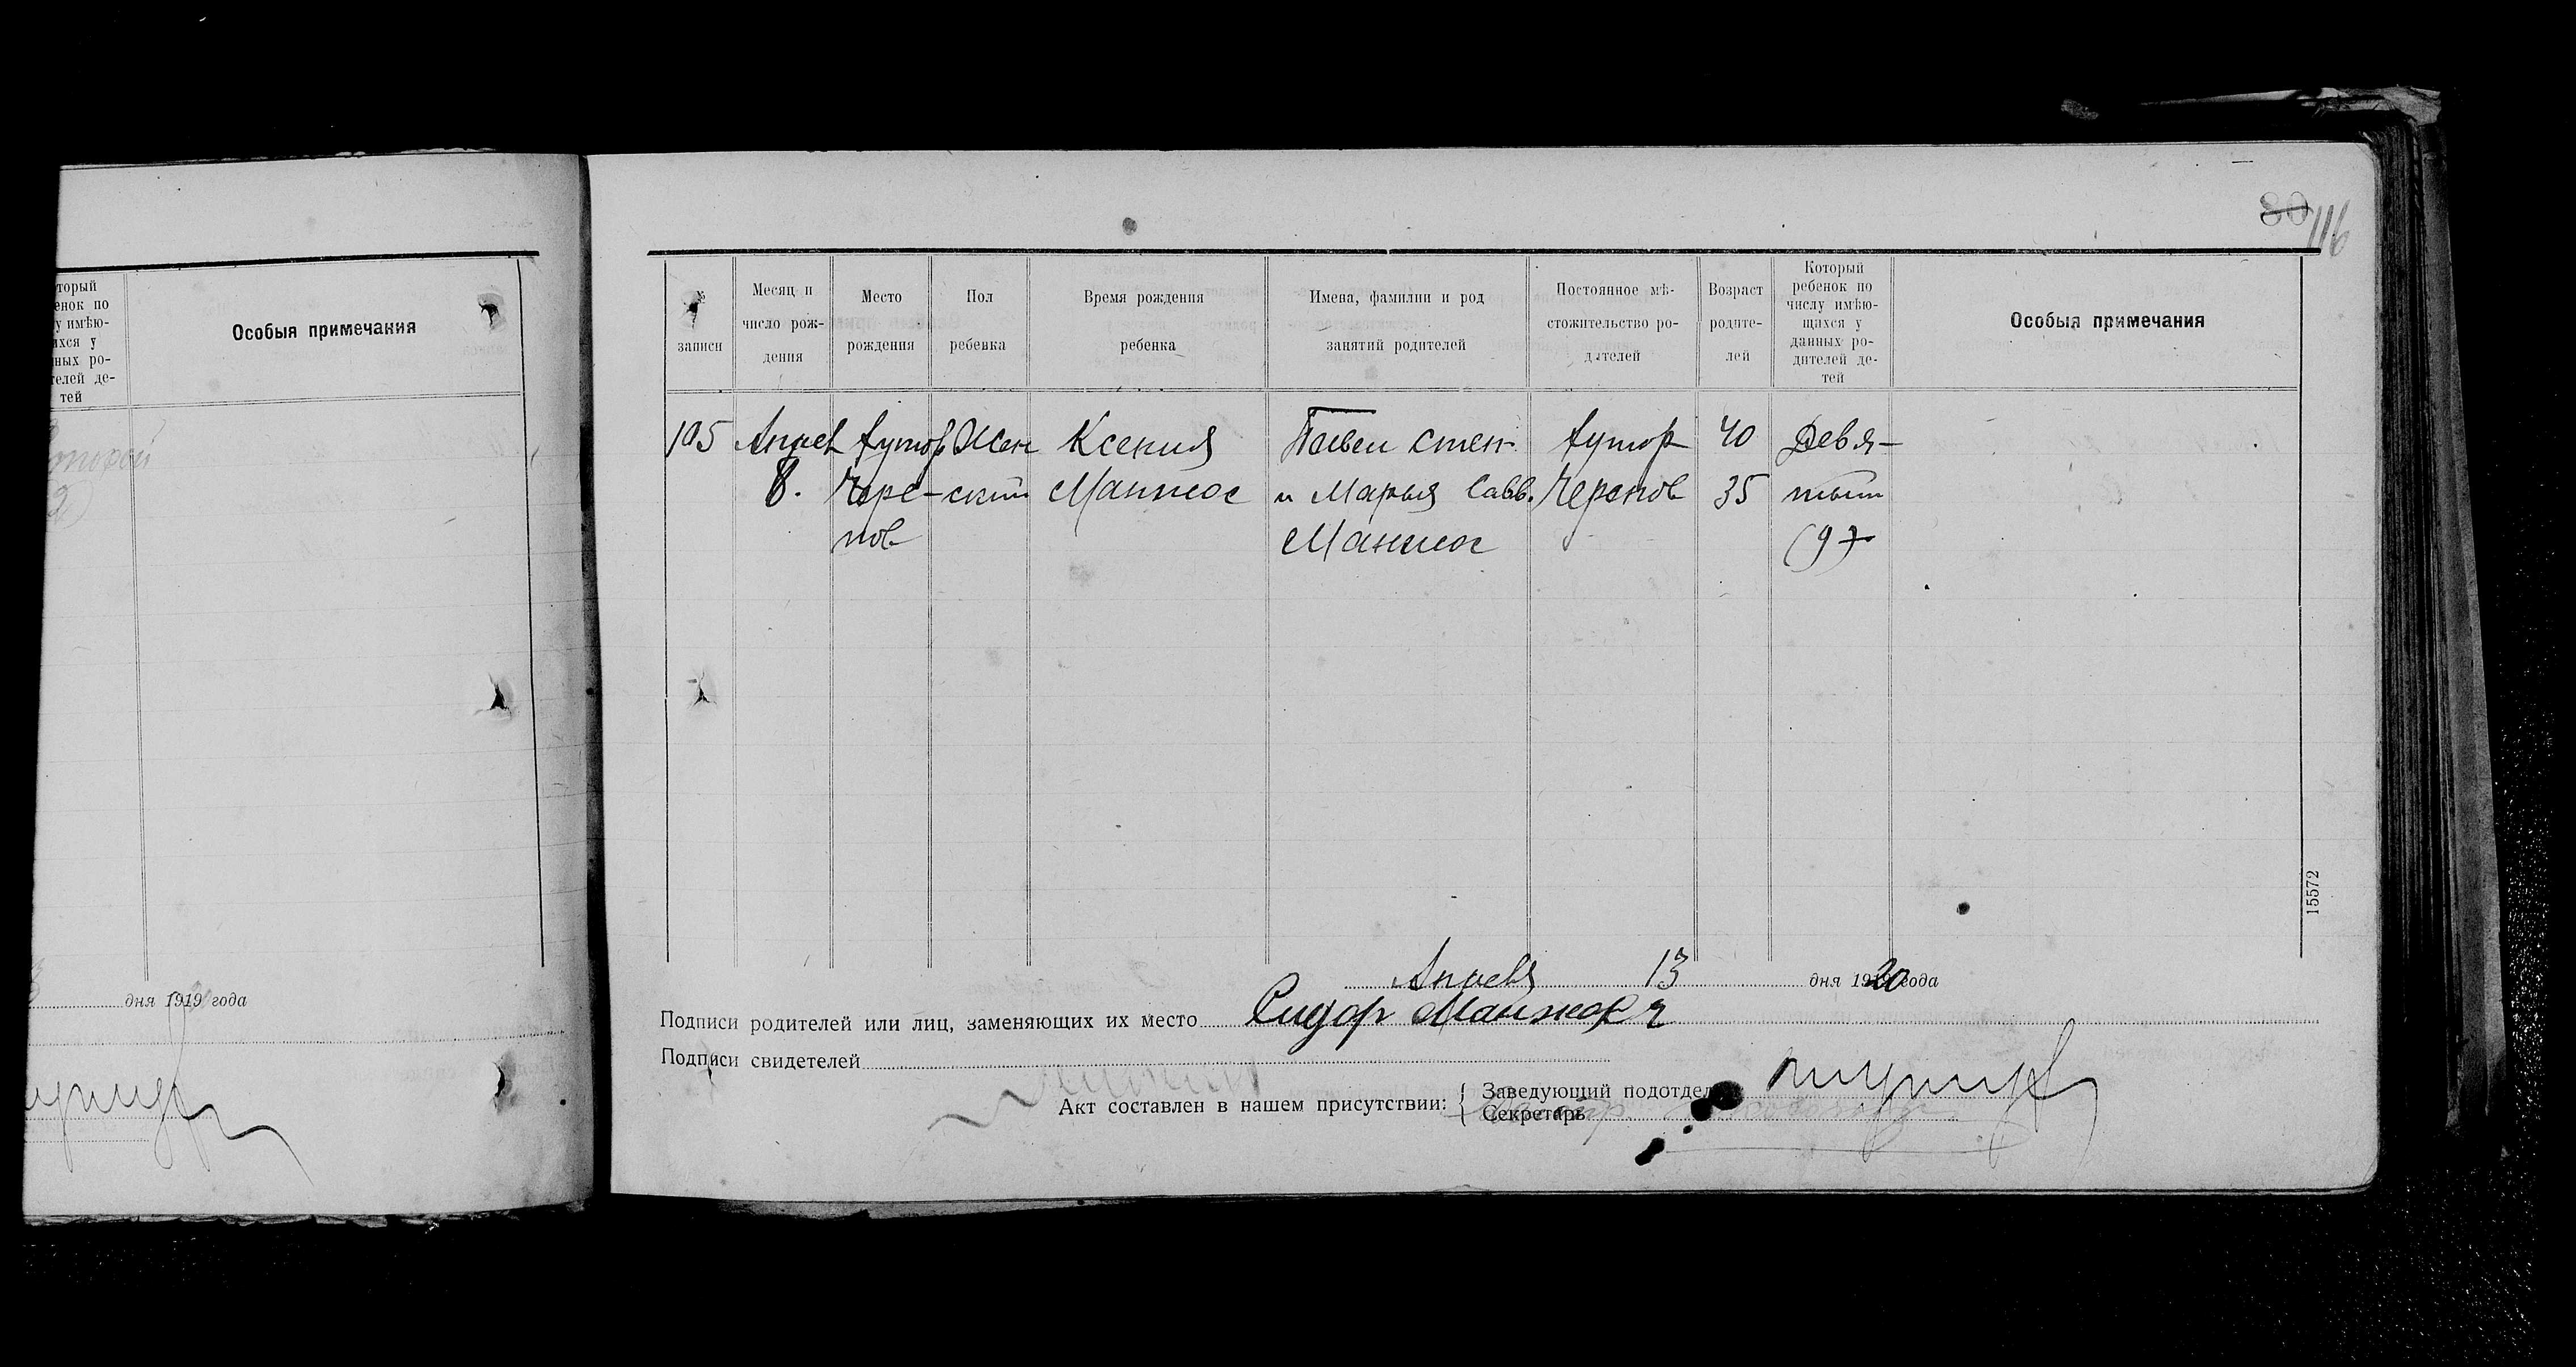 торый
енок по
у имѣю-
ихся у
нных ро-
телей де-
тей
Особыя примечания
дня 1919 года
80 116
№
записи
Месяц и
число рож-
дения
Место
рождения
Пол
ребенка
Время рождения
ребенка
Имена, фамилии и род
занятий родителей
Постоянное мѣ-
стожительство ро-
дителей
Возраст
родите-
лей
Который
ребенок по
числу имѣю-
щихся у
данных ро-
дителей де-
тей
Особыя примечания
105 Апрел Хутор Жен Ксения Павел Степ. Хутор 40 Девя-
8. Чере- ский Манжос и Марья Савв. Черепов 35 тый
пов Манжос (9)
Апреля 13 дня 1920 года
Подписи родителей или лиц, заменяющих их место Сидор Манжос
Подписи свидетелей
Акт составлен в нашем присутствии:
Заведующий подотдел
Секретарь
15572